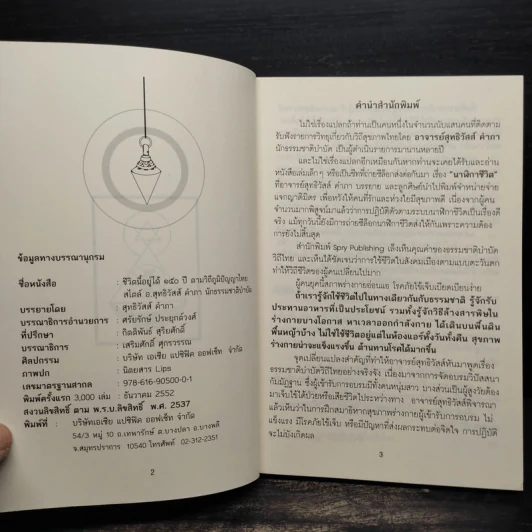 ข้อมูลทางบรรณานุกรม
ชื่อหนังสือ : ชีวิตนี้อยู่ได้ ๑๔๐ ปี ตามวิถีภูมิปัญญาไทย
สไตล์ อ.สุทธิวัสส์ คำภา นักธรรมชาติบำบัด
บรรยายโดย : สุทธิวัสส์ คำภา
บรรณาธิการอำนวยการ : ศรัยรักจ์ ประยุกต์วงศ์
ที่ปรึกษา : กิตติพันธ์ สุริยศักดิ์
บรรณาธิการ : เสริมศักดิ์ ศุภรวรรณ
ศิลปกรรม : บริษัท เอเชีย แปซิฟิค ออฟเซ็ท จำกัด
ภาพปก : นิตยสาร Lips
เลขมาตรฐานสากล : 978-616-90500-0-1
พิมพ์ครั้งแรก 3,000 เล่ม : ธันวาคม 2552
สงวนลิขสิทธิ์ ตาม พ.ร.บ.ลิขสิทธิ์ พ.ศ. 2537
พิมพ์ที่ : บริษัทเอเชีย แปซิฟิค ออฟเซ็ท จำกัด
54/3 หมู่ 10 ถ.เทพารักษ์ ต.บางปลา อ.บางพลี
จ.สมุทรปราการ 10540 โทรศัพท์ 02-312-2351
2
คำนำสำนักพิมพ์
ไม่ใช่เรื่องแปลกถ้าท่านเป็นคนหนึ่งในจำนวนนับแสนคนที่ติดตาม
รับฟังรายการวิทยุเกี่ยวกับวิถีสุขภาพไทยโดย อาจารย์สุทธิวัสส์ คำภา
นักธรรมชาติบำบัด เป็นผู้ดำเนินรายการมานานหลายปี
และคงไม่ใช่เรื่องแปลกอีกเหมือนกันหากท่านจะเคยได้รับและอ่าน
หนังสือเล่มเล็กๆ หรือเป็นชีทที่ถ่ายซีล็อกส่งต่อกันมา เรื่อง "นาฬิกาชีวิต"
ที่อาจารย์สุทธิวัสส์ คำภา บรรยาย และลูกศิษย์นำไปพิมพ์จำหน่ายจ่าย
แจกญาติมิตร เพื่อหวังให้คนที่รักและห่วงใยมีสุขภาพดี เนื่องจากผู้คน
จำนวนมากพิสูจน์มาแล้วว่าการปฏิบัติตัวตามระบบนาฬิกาชีวิตเป็นเรื่องดี
จริง แม้ทุกวันนี้ยังมีการถ่ายซีล็อกนาฬิกาชีวิตส่งให้กันเพราะความต้อง
การยังไม่สิ้นสุด
สำนักพิมพ์ Spry Publishing เล็งเห็นคุณค่าของธรรมชาติบำบัด
วิถีไทย และเห็นได้ชัดเจนว่าการใช้ชีวิตในสังคมเมืองตามแบบตะวันตก
ทำให้วิถีชีวิตของผู้คนเปลี่ยนไปมาก
ผู้คนยุคนี้สภาพร่างกายอ่อนแอ โรคภัยไข้เจ็บเบียดเบียนง่าย
ถ้าเรารู้จักใช้ชีวิตไปในทางเดียวกันกับธรรมชาติ รู้จักรับ
ประทานอาหารที่เป็นประโยชน์ รวมทั้งรู้จักวิธีล้างสารพิษใน
ร่างกายบางโอกาส หาเวลาออกกำลังกาย ได้เดินบนพื้นดิน
พื้นหญ้าบ้าง ไม่ใช่ใช้ชีวิตอยู่แต่ในห้องแอร์ทั้งวันทั้งคืน สุขภาพ
ร่างกายน่าจะแข็งแรงขึ้น ต้านทานโรคได้มากขึ้น
จุดเปลี่ยนแปลงสำคัญที่ทำให้อาจารย์สุทธิวัสส์หันมาพูดเรื่อง
ธรรมชาติบำบัดวิถีไทยอย่างจริงจัง เนื่องมาจากการจัดอบรมวิปัสสนา
กัมมัฏฐาน ซึ่งผู้เข้ารับการอบรมมีทั้งคนหนุ่มสาว บางส่วนเป็นผู้สูงวัยต้อง
มาเจ็บไข้ได้ป่วยหรือเสียชีวิตไประหว่างทาง อาจารย์สุทธิวัสส์พิจารณา
แล้วเห็นว่าในการฝึกสมาธิหากสุขภาพร่างกายผู้เข้ารับการอบรม ไม่
แข็งแรง มีโรคภัยไข้เจ็บ หรือมีปัญหาที่ส่งผลกระทบต่อจิตใจ การปฏิบัติ
จะไม่บังเกิดผล
3